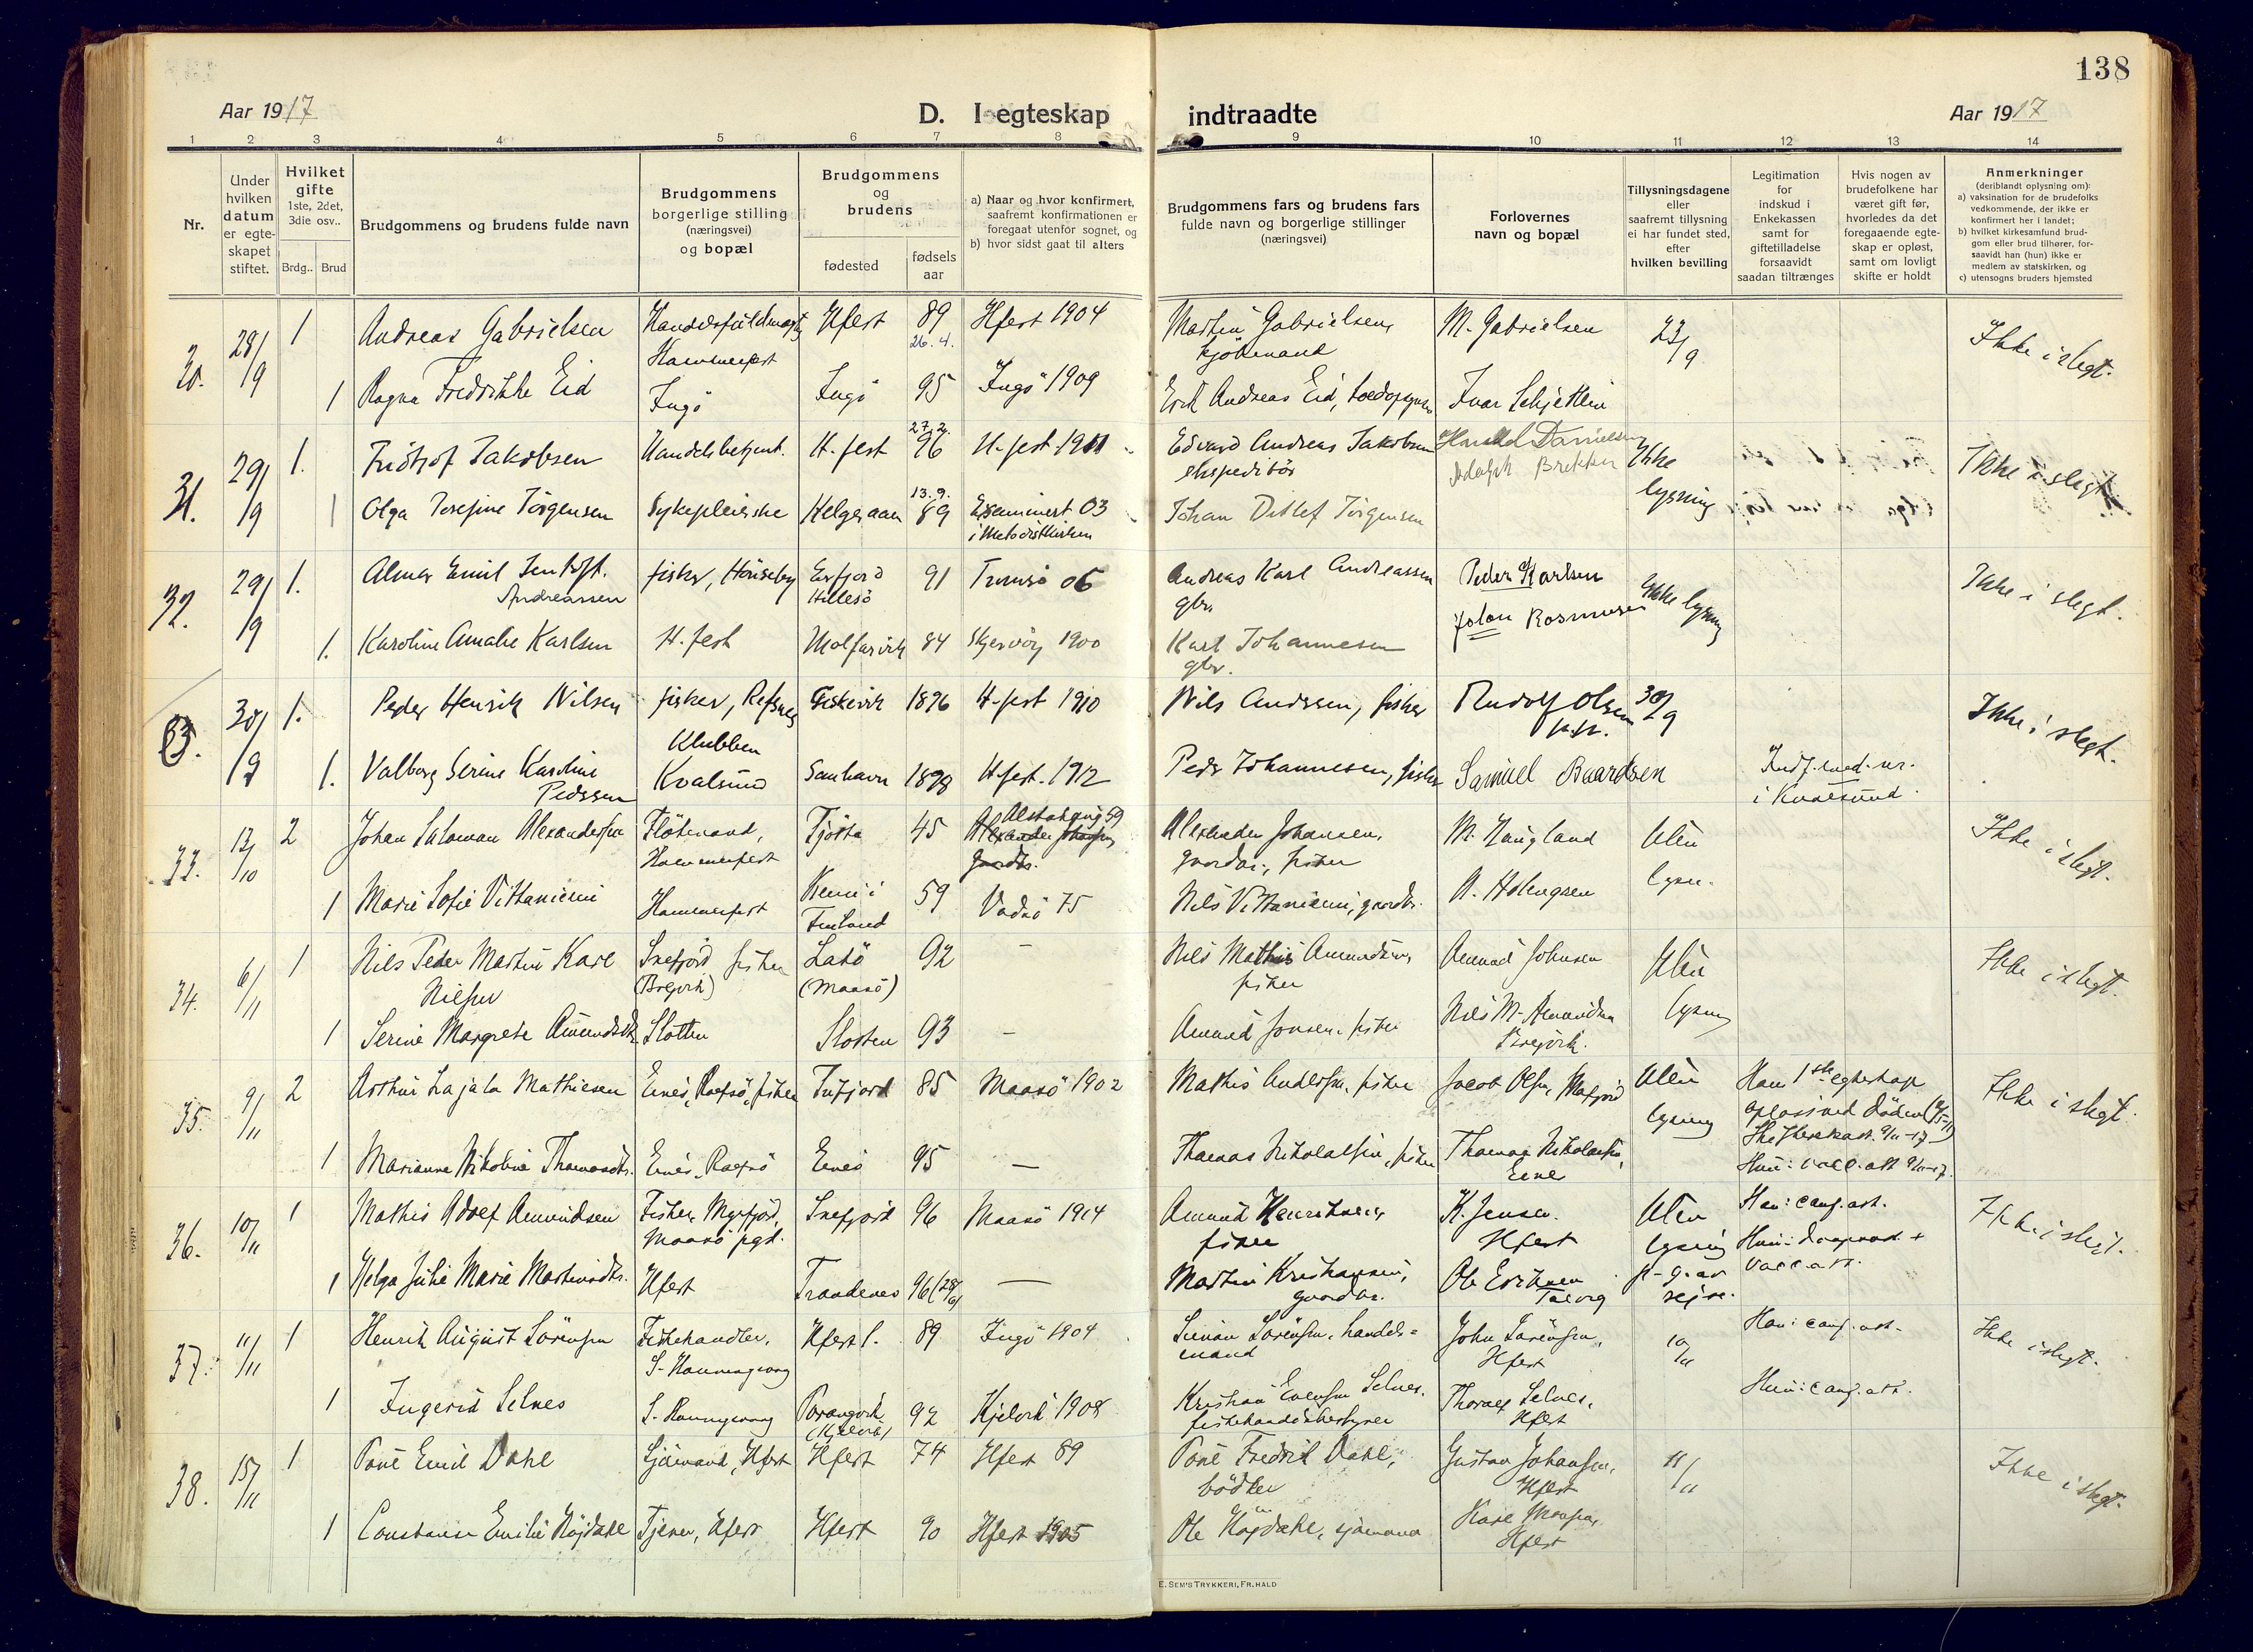 138
Aar 1917
D. I egteskap indtraadte
Aar 1917
1 2 3 4 5 6 7 8 9 10 11 12 13 14
Nr.
Under hvilken datum er egteskapet stiftet.
Hvilket gifte 1ste, 2det, 3die osv..
Brdg.. Brud
Brudgommens og brudens fulde navn
Brudgommens borgerlige stilling (næringsvei) og bopæl
Brudgommens og brudens
fødested
fødsels aar
a) Naar og hvor konfirmert, saafremt konfirmationen er foregaat utenfor sognet, og
b) hvor sidst gaat til alters
Brudgommens fars og brudens fars fulde navn og borgerlige stillinger (næringsvei)
Forlovernes navn og bopæl
Tillysningsdagene eller saafremt tillysning ei har fundet sted, efter hvilken bevilling
Legitimation for indskud i Enkekassen samt for giftetilladelse forsaavidt saadan tiltrænges
Hvis nogen av brudefolkene har været gift før, hvorledes da det foregaaende egteskap er opløst, samt om lovligt skifte er holdt
Anmerkninger
(deriblandt oplysning om):
a) vaksination for de brudefolks vedkommende, der ikke er konfirmert her i landet;
b) hvilket kirkesamfund brudgom eller brud tilhører, forsaavidt han (hun) ikke er medlem av statskirken, og
c) utensogns bruders hjemsted
30. 28/9 1 Andreas Gabrielsen Hfest 89 Hfest 1904 Martin Gabrielsen, M. Gabrielsen 23/9 Ikke i slegt.
Hammerfest 26.4. kjöbmand
1 Ragna Fredrikke Eid Ingö Ingö 95 Ingö 1909 Erik Andreas Eid, Ivar Schjetlein
31. 29/9 1. Fridtjof Jakobsen Handelsbetjent. H.fest 27.2. 96 H.fest 1911 Edvard Andreas Jakobsen Harald Danielsen Ikke Ikke i slegt
ekspeditör Adolph Brekke lysning
1 Olga Josefine Jörgensen Sykepleierske Helgeraaen 13.9. 89 03 Johan Ditlef Jörgensen
i Metodistkirken
32. 29/9 1. Almar Emil Jentoft. fisker, Hönseby Erfjord 91 Tromsö 06 Andreas Karl Andreassen Peder Karlsen Ikke lysning Ikke i slegt.
Andreassen Hillesö gbr.
Johan Rosmusen
1. Karoline Amalie Karlsen H.fest 84 Skjervöy 1900 Karl Johannesen
gbr.
30/9 1. Peder Henrik Nilsen fisker, Refsnes Fiskevik 1896 H.fest 1910 Nils Andersen, fisker Rudolf Olsen 30/9 Ikke i slegt.
Klubben
1. Valborg Serine Karoline Kvalsund 1898 H.fest. 1912 Peder Johannesen, fisker Samuel Baardsen
Pedersen i Kvalsund
33. 13/10 2 Johan Salomon Alexandersen Flötmand, Tjötta 45 Alstahaug 59 Alexander Johansen, M. Haugland Uten Ikke i slegt.
Hammerfest gaardbr., fisker
1 Marie Sofie Vittaniemi Hammerfest Kemi i Finland 59 Vadsö 75 Nils Vittaniemi, gaardbr. lysn.
34. 6/11 1 Nils Peder Martin Karl Snefjord fisker 92 – Nils Mathis Amundsen, Amund Johnsen Uten Ikke i slegt.
Nilsen (Maasö) fisker lysning
1 Serine Margrete Amundsdtr. Slotten Slotten 93 – Amund Jonsen, fisker Nils M. Amundsen
35. 9/11 2 Arthur Lajala Mathiesen fisker 85 Maasö 1902 Mathis Andersen, fisker Jacob Olsen, Uten Han 1ste egteskap Ikke i slegt.
lysning oplöst ved döden
1 Marianne Nikoline Thomasdtr. 95 – Thomas Nikolaisen, fisker Thomas Nikolaisen,
Hun: vacc.att. 9/11-17
36. 10/11 1 Mathis Adolf Amundsen Fisker, Myrfjord, Snefjord 96 Maasö 1914 Amund Henriksen, K. Jensen. Uten Han: conf. att. Ikke i slegt.
Maasö pgd. fisker Hfest lysning
1 Helga Julie Marie Martinsdtr. Hfest Trondenes 96 – Martin Kristiansen, Ole Eriksen vacc. att.
gaardbr. Talvig
37. 11/11 1 Henrik August Sörensen Fiskehandler, Hfest l. 89 Ingö 1904 Simon Sörensen, handels= John Sörensen, 10/11 Han: conf. att. Ikke i slegt.
mand Hfest
1 Ingerid Selnes 92 Kjelvik 1908 Kristian Evensen Selnes. Thoralf Selnes, Hun: conf. att.
Hfest
38. 15/11 1 Poul Emil Dahl Sjömand, Hfest Hfest 74 Hfest 89 Poul Fredrik Dahl, Gustav Johansen, 11/11 Ikke i slegt.
bödker Hfest
1 Constance Emilie Höjdahl Tjener, Hfest Hfest 90 Hfest 1905 Ole Höjdahl, sjömand
Hfest
E. SEM'S TRYKKERI, FR.HALD